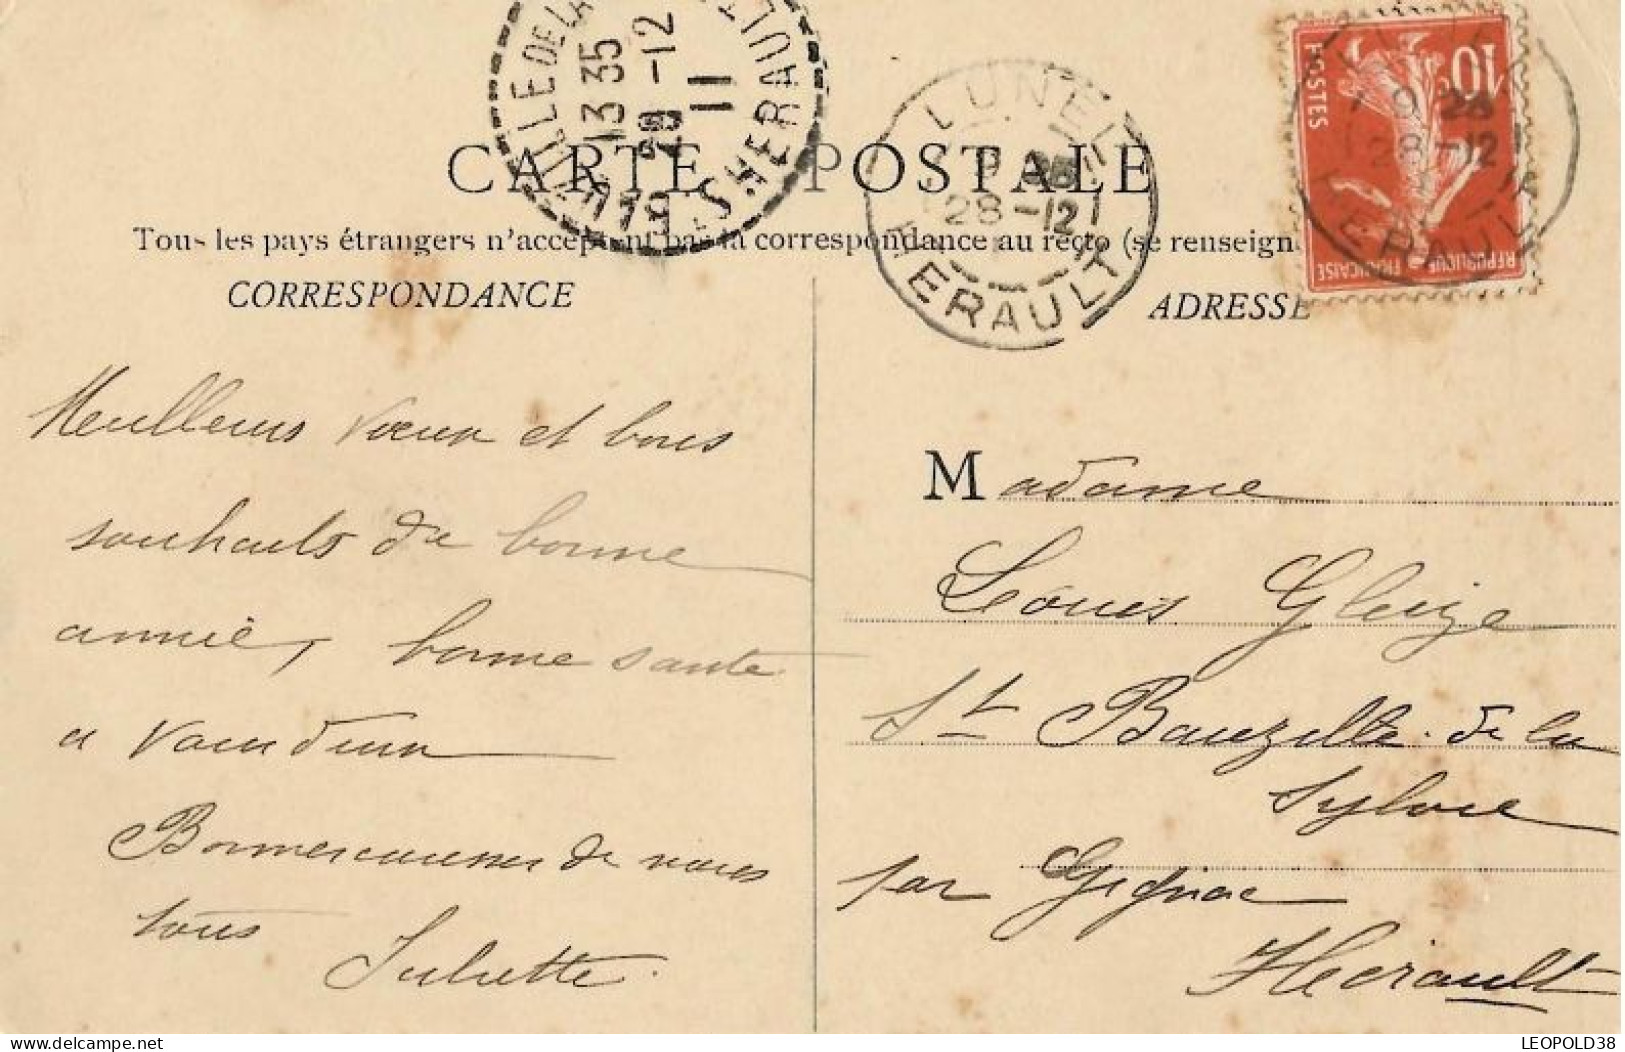 BAUZILLE DE LA
13 35
28 -12
11
HERAULT
CARTE POSTALE
LUNEL
28 -12
HERAULT
10
POSTES
REPUBLIQUE FRANÇAISE
28 -12
HERAULT
Tous les pays étrangers n'acceptent pas la correspondance au recto (se renseign
CORRESPONDANCE
ADRESSE
Meilleurs vœux et bons
souhaits de bonne
année, bonne santé
a vous deux
Bonnes caresses de nous
tous
Juliette.
Madame
Louis Gleize
St Bauzille de la
Sylve
par Gignac
Hérault
delcampe.net
LEOPOLD38